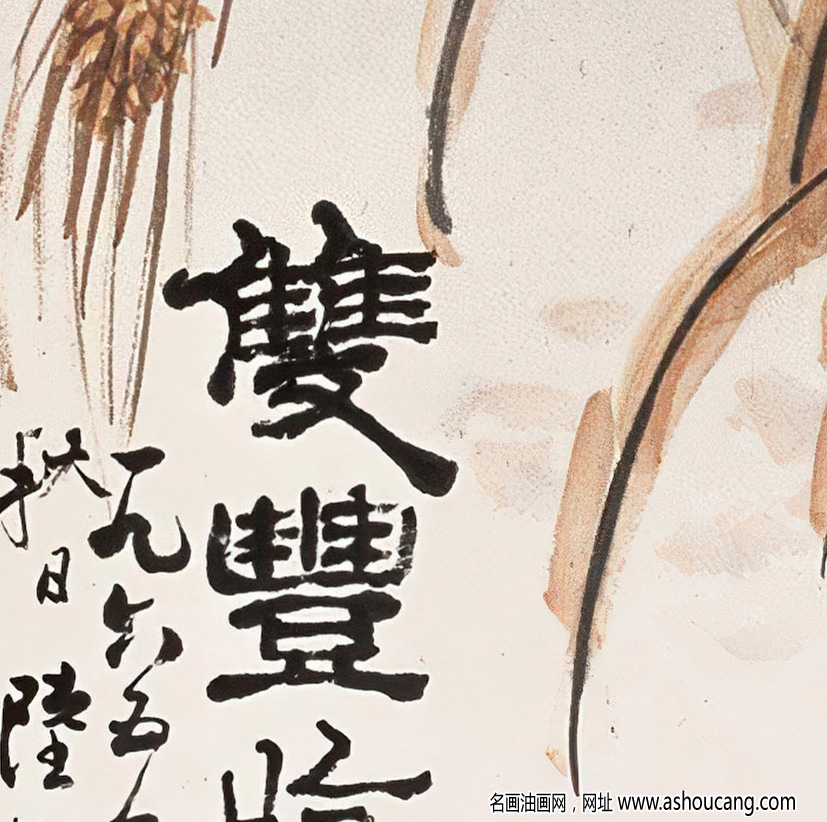 雙豐
一九六五
秋日 陸
名画油画网，网址 www.ashoucang.com